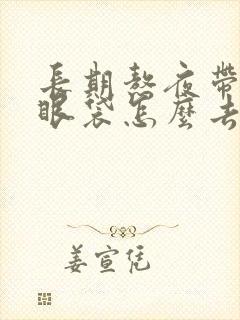 長期熬夜帶
眼袋怎麼去
姜宣凭